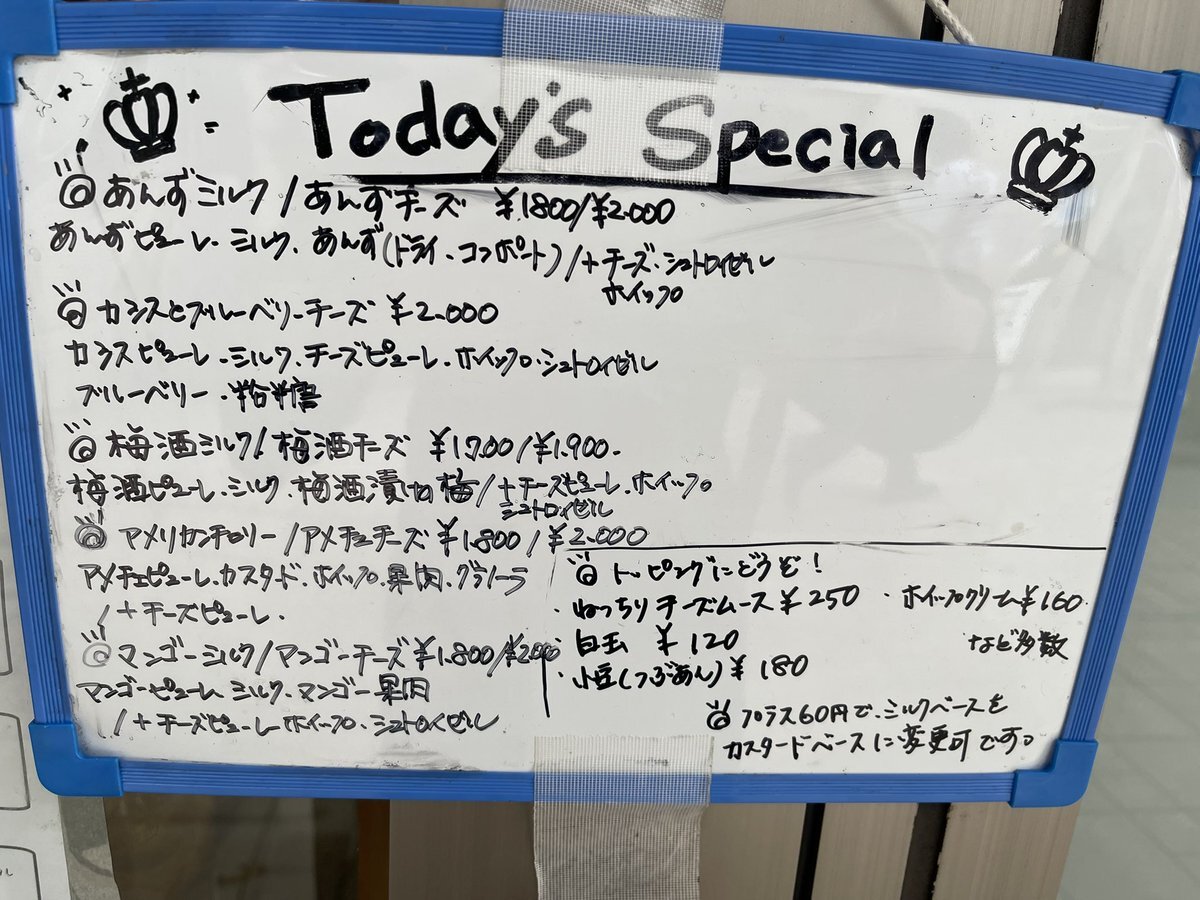 Today's Special
あんずミルク/あんずチーズ ¥1800/¥2.000
あんずピューレ・ミルク・あんず(ドライ・コンポート)/+チーズ・シュトロイゼル
ホイップ
カシスとブルーベリーチーズ ¥2.000
カシスピューレ・ミルク・チーズピューレ・ホイップ・シュトロイゼル
ブルーベリー・粉糖
梅酒ミルク/梅酒チーズ ¥1700/¥1.900-
梅酒ピューレ・ミルク・梅酒漬け梅/+チーズピューレ・ホイップ
シュトロイゼル
アメリカンチェリー/アメチェチーズ ¥1.800/¥2.000
アメチェピューレ・カスタード・ホイップ・果肉・グラノーラ
/+チーズピューレ・
マンゴーミルク/マンゴーチーズ ¥1.800/¥2.000
マンゴーピューレ ミルク・マンゴー果肉
/+チーズピューレ ホイップ・シュトロイゼル
トッピングにどうぞ!
・ねっちりチーズムース ¥250 ・ホイップクリーム ¥160
・白玉 ¥120 など多数
・小豆(つぶあん) ¥180
プラス60円で、ミルクベースを
カスタードベースに変更可です。